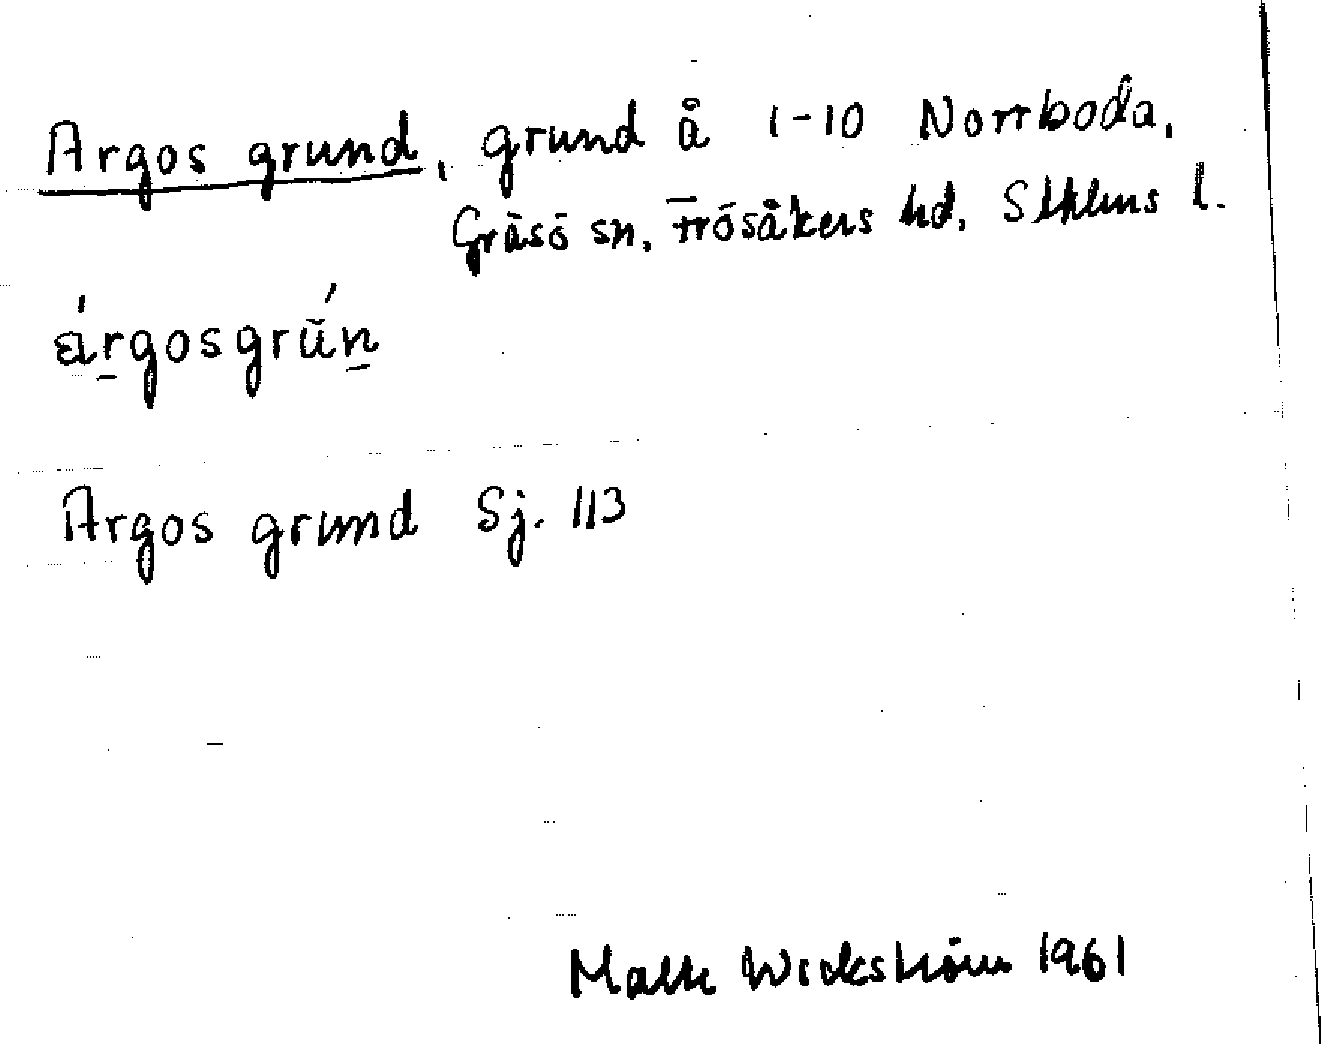 Argos grund, grund å 1-10 Norrboda,
Gräsö sn, Frösåkers hd, Sthlms l.
árgosgrǘn
Argos grund Sj. 113
Malte Wickström 1961